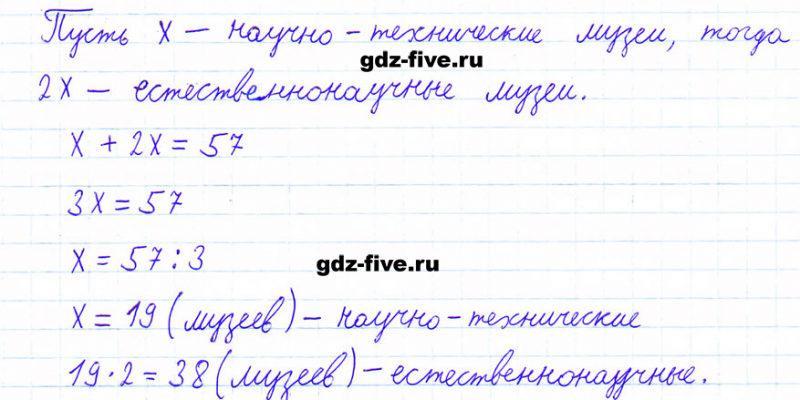 Пусть х — научно-технические музеи, тогда
gdz-five.ru
2х — естественнонаучные музеи.
х + 2х = 57
3х = 57
х = 57 : 3
gdz-five.ru
х = 19 (музеев) — научно-технические
19 · 2 = 38 (музеев) — естественнонаучные.